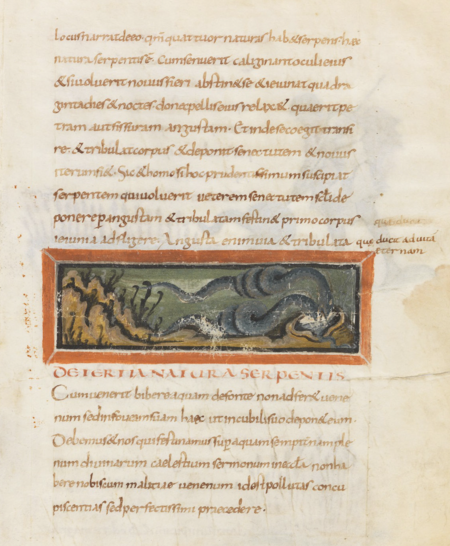 locus narrat de eo. qm quattuor naturas hab& serpens haec
natura serpentis ē. Cum senuerit caliginant oculi eius
& si voluerit novus fieri abstin& se & ieiunat quadra
ginta dies & noctes donec pellis eius relax&. quaerit pe
tram aut fissuram angustam. Et inde se coegit transi
re. & tribulat corpus & deponit senectutem & novus
iterum fi&. Sic & homo si hoc prudentissimum suscipiat
serpentem qui voluerit veterem senectutem scli de
ponere per angustam & tribulatam festin& primo corpus
ieiunia adfligere. Angusta enim via & tribulata que ducit ad vita
eternam
DE TERTIA NATURA SERPENTIS.
Cum venerit bibere aquam de fonte non adfer& vene
num sed in fovea
haec ut in cubili suo depon& eum.
Debemus & nos qui festinamus super aquam sempiternam ple
num divinarum caelestium sermonum in ecla. non ha
bere nobiscum malitiae venenum id est pollutas concu
piscentias sed perfectissimi praecedere.